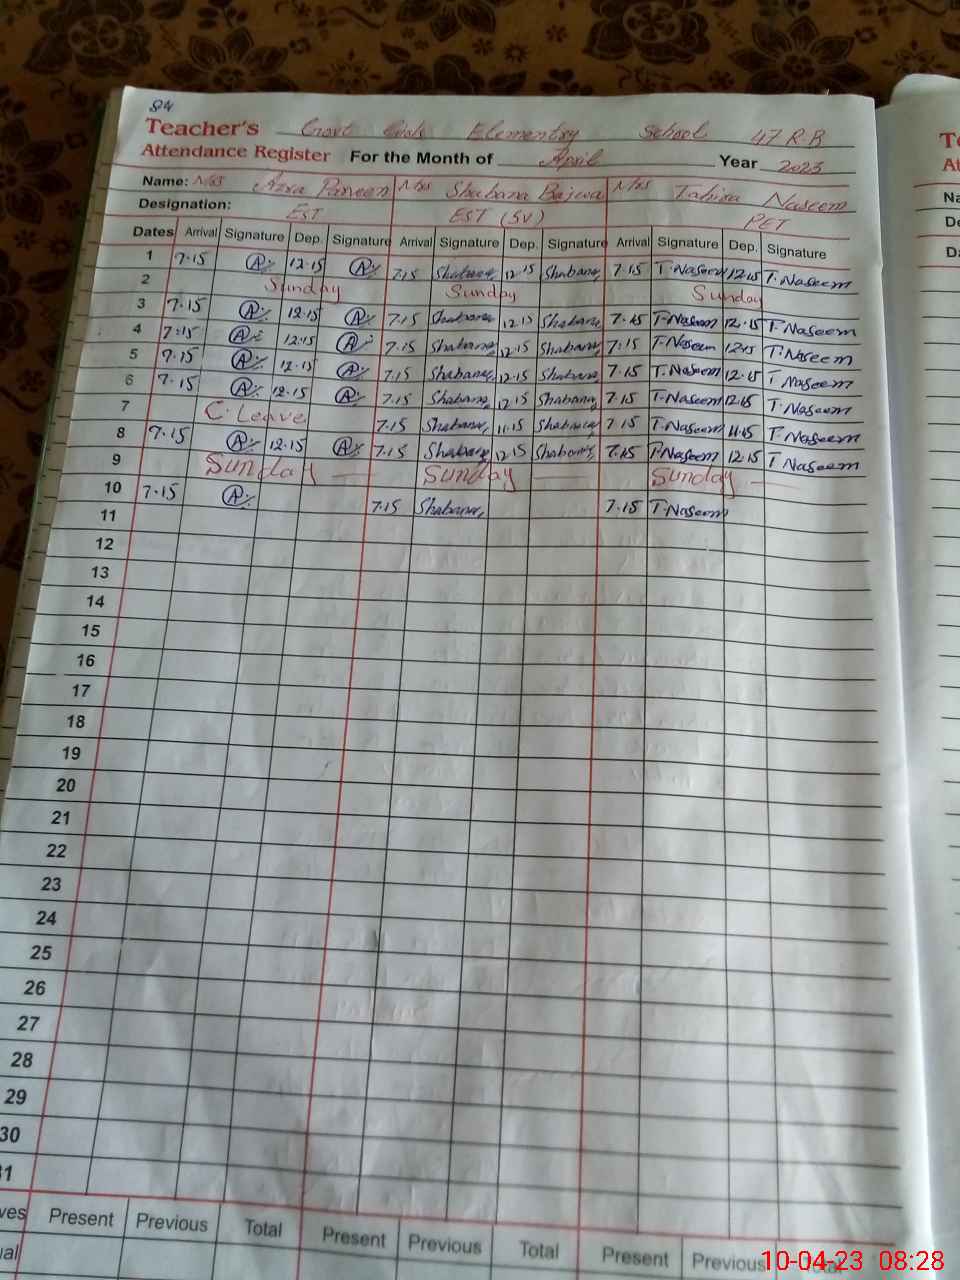 84
Teacher's Govt Girls Elementry School 47 R.B
Attendance Register For the Month of April Year 2023
Name: Mrs Azra Parveen Mrs Shabana Bajwa Mrs Tahira Naseem
Designation: EST EST (SV) PET
Dates Arrival Signature Dep. Signature Arrival Signature Dep. Signature Arrival Signature Dep. Signature
1 7.15 12.15 7.15 Shabana 12.15 Shabana 7.15 T.Naseem 12.15 T.Naseem
2 Sunday Sunday Sunday
3 7.15 12.15 7.15 Shabana 12.15 Shabana 7.15 T.Naseem 12.15 T.Naseem
4 7:15 12.15 7.15 Shabana 12.15 Shabana 7:15 T.Naseem 12.15 T.Naseem
5 7.15 12.15 7.15 Shabana 12.15 Shabana 7.15 T.Naseem 12.15 T Naseem
6 7.15 12.15 7.15 Shabana 12.15 Shabana 7.15 T.Naseem 12.15 T.Naseem
7 C. Leave 7.15 Shabana 11.15 Shabana 7.15 T.Naseem 11.15 T.Naseem
8 7.15 12.15 7.15 Shabana 12.15 Shabana 7.15 T.Naseem 12.15 T Naseem
9 Sunday Sunday Sunday
10 7.15 7.15 Shabana 7.15 T.Naseem
11
12
13
14
15
16
17
18
19
20
21
22
23
24
25
26
27
28
29
30
Present Previous Total Present Previous Total Present Previous Total
10-04-23 08:28